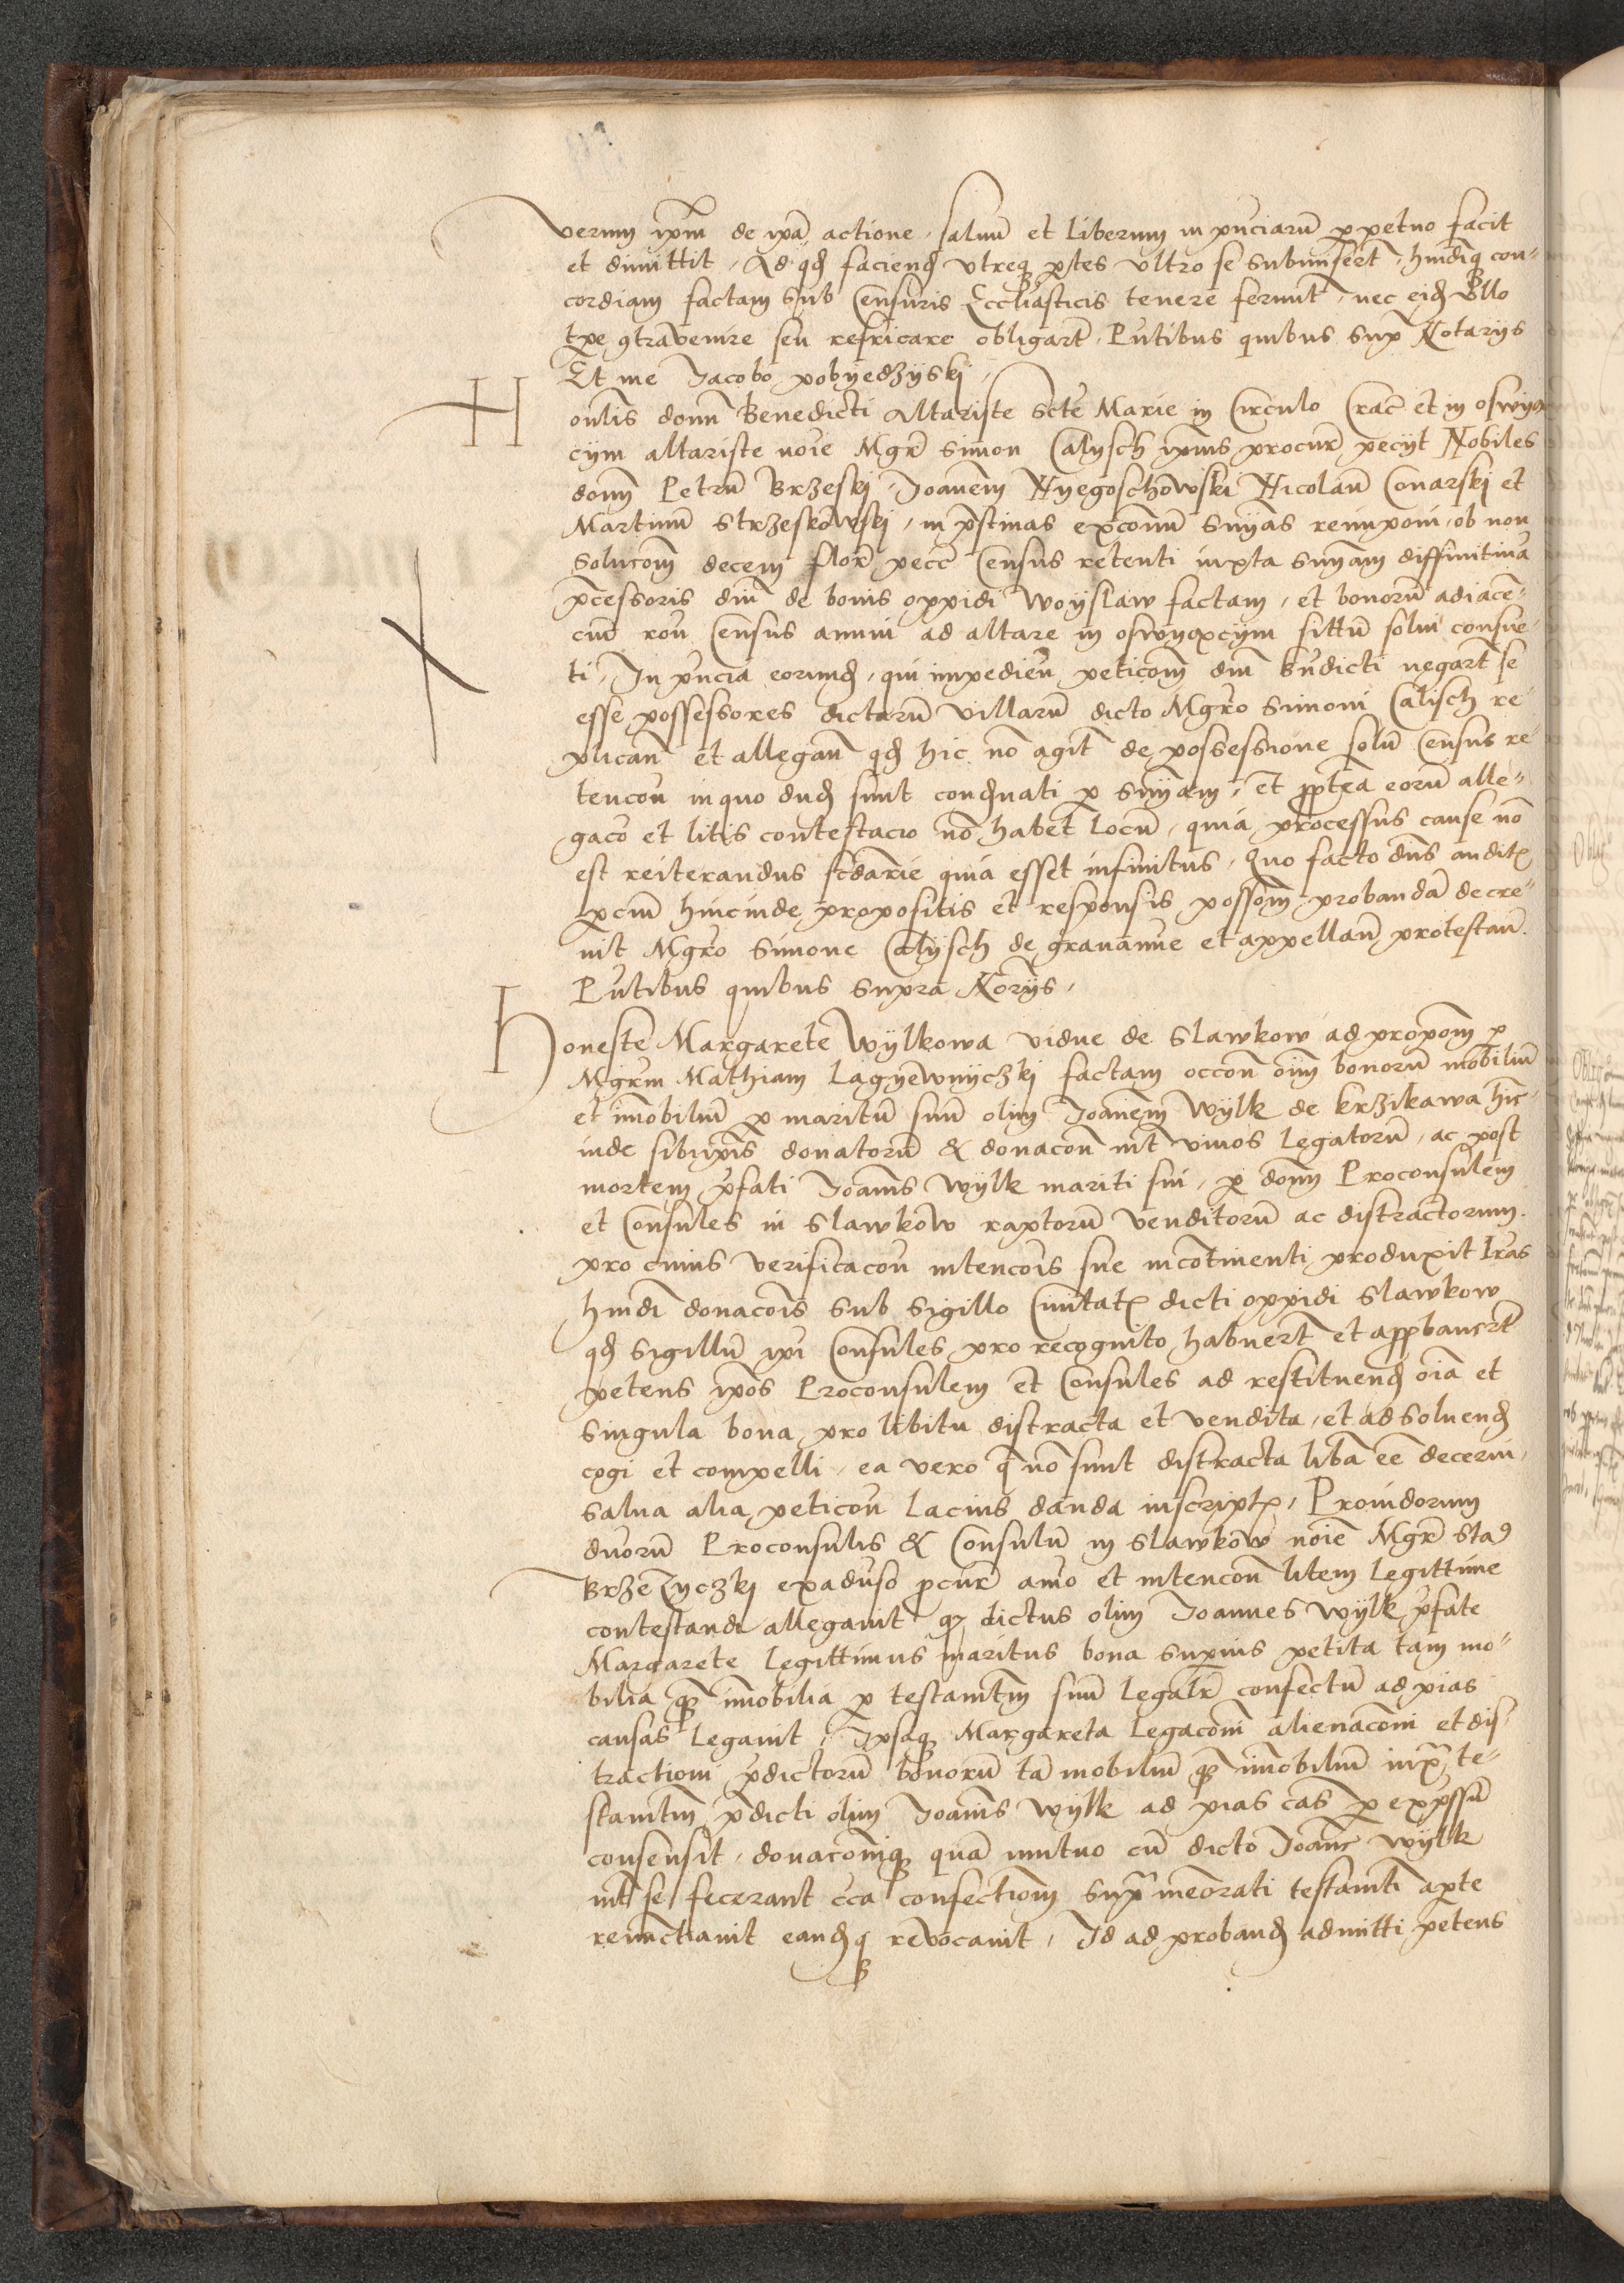 verum ip̄m de ip̄a actione saluū et liberum in pn̄ciarū perpetuo facit
et dimittit, Ad qđ faciend utreq partes ultro se submisert, huiōiq con-
cordiam factam sub Censuris Ecclīasticis tenere ferunt, nec eiđ Vllo
tp̄e ɔtravenire seu refricare obligart, Pn̄tibus quibus sup̄ Notarijs
Et me Jacobo pobyedzyskj
Honlis domī Benedicti altariste Scte Marie in Circulo Crac̄ et in oswyą
cym altariste noīe Mgr̄ Simon Calysch ip̄ius procur̄ pecyt Nobiles
domī Petrū Brzeskj, Joanem Nyegoschowski Nicolaū Conarskj et
Martinū Strzeskowskj, in pr̄stinas excom̄ sn̄ias reimponi, ob non
soluco͞m decem flor̄ pecc̄ Census retenti iuxta sn̄iam diffinitiuā
pc̄essoris dn̄i de bonis oppidi Woyslaw factam, et bonorū adiacē-
ciū ron̄ Census annui ad altare in oswyąxcym sittū solui consue-
ti, In pn̄cia eorunđ, qui impedien̄ petico͞m dn̄i Bn̄dicti negart se
esse possessores dictarū villarū dicto Mgr̄o Simoni Calisch re-
plican̄ et allegan̄ qđ hic no͞ agit̄ de possessione solū Census re-
tencon̄ in quo dud sunt condn̄ati p sn̄iam, et ppterea eorū alle-
gaco͞ et litis contestacio no͞ habet locū, quia processus cause no͞
est reiterandus scđarie quia esset infinitus, Quo facto dn̄s audit
pciū hincinde propositis et responsis posso͞m probandā decre-
uit Mgr̄o Simone Calysch de grauamīe et appellan̄ protestan̄
Pn̄tibus quibus supra No͞rijs,
Honeste Margarete Wylkowa vidue de Slawkow ad propo͞m p
Mgr̄um Mathiam Lagyewnyczkj factam occon̄ oīm bonorū mobiliū
et im̄obiliū p maritū suū olim Joanem Wylk de krzikawa hīc-
inde sibiip̄is donatorū & donacon̄ int̄ viuos legatorū, ac post
mortem pr̄fati Joanis Wylk mariti sui, p dom̄ Proconsulem
et Consules in Slawkow raptorū venditorū ac distractorum.
pro cuius verificacon̄ intenco͞is sue incōtinenti produxit lr̄as
huiōi donaco͞is sub Sigillo Ciuitat dicti oppidi Slawkow
qđ sigillū ip̄i Consules pro recognito habuert et appbauert
petens ip̄os Proconsulem et Consules ad restituend oīa et
singula bona pro libitu distracta et vendita, et ad soluend
cogi et compelli, ea vero q̄ no͞ sunt distracta libā ēe decerni,
salua alia peticon̄ Lacius danda inscript, Prouidorum
duorū Proconsulis & Consulū in Slawkow noīe Mgr̄ Sta
Brzezyczkj exađuso pcur̄ aīo et intencon̄ litem legittime
contestandi allegauit q dictus olim Joannes Wylk pr̄fate
Margarete legittimus maritus bona superius petita tam mo-
bilia q im̄obilia p testamtm suū legalr̄ confectū ad pias
causas legauit, Ipsaq Margareta legaco͞ni alienaco͞ni et dis-
tractioni pr̄dictorū bonorū tā mobiliū q im̄obiliū iux̄ te-
stamtm pr̄dicti olim Joanis Wylk ad pias cās p expssū
consensit, donaco͞niq quā mutuo cū dicto Joane Wylk
int se fecerant c̄ca confectio͞m supr̄ meo͞rati testamti apte
renūctiauit eandq revocauit, Id ad proband admitti petens